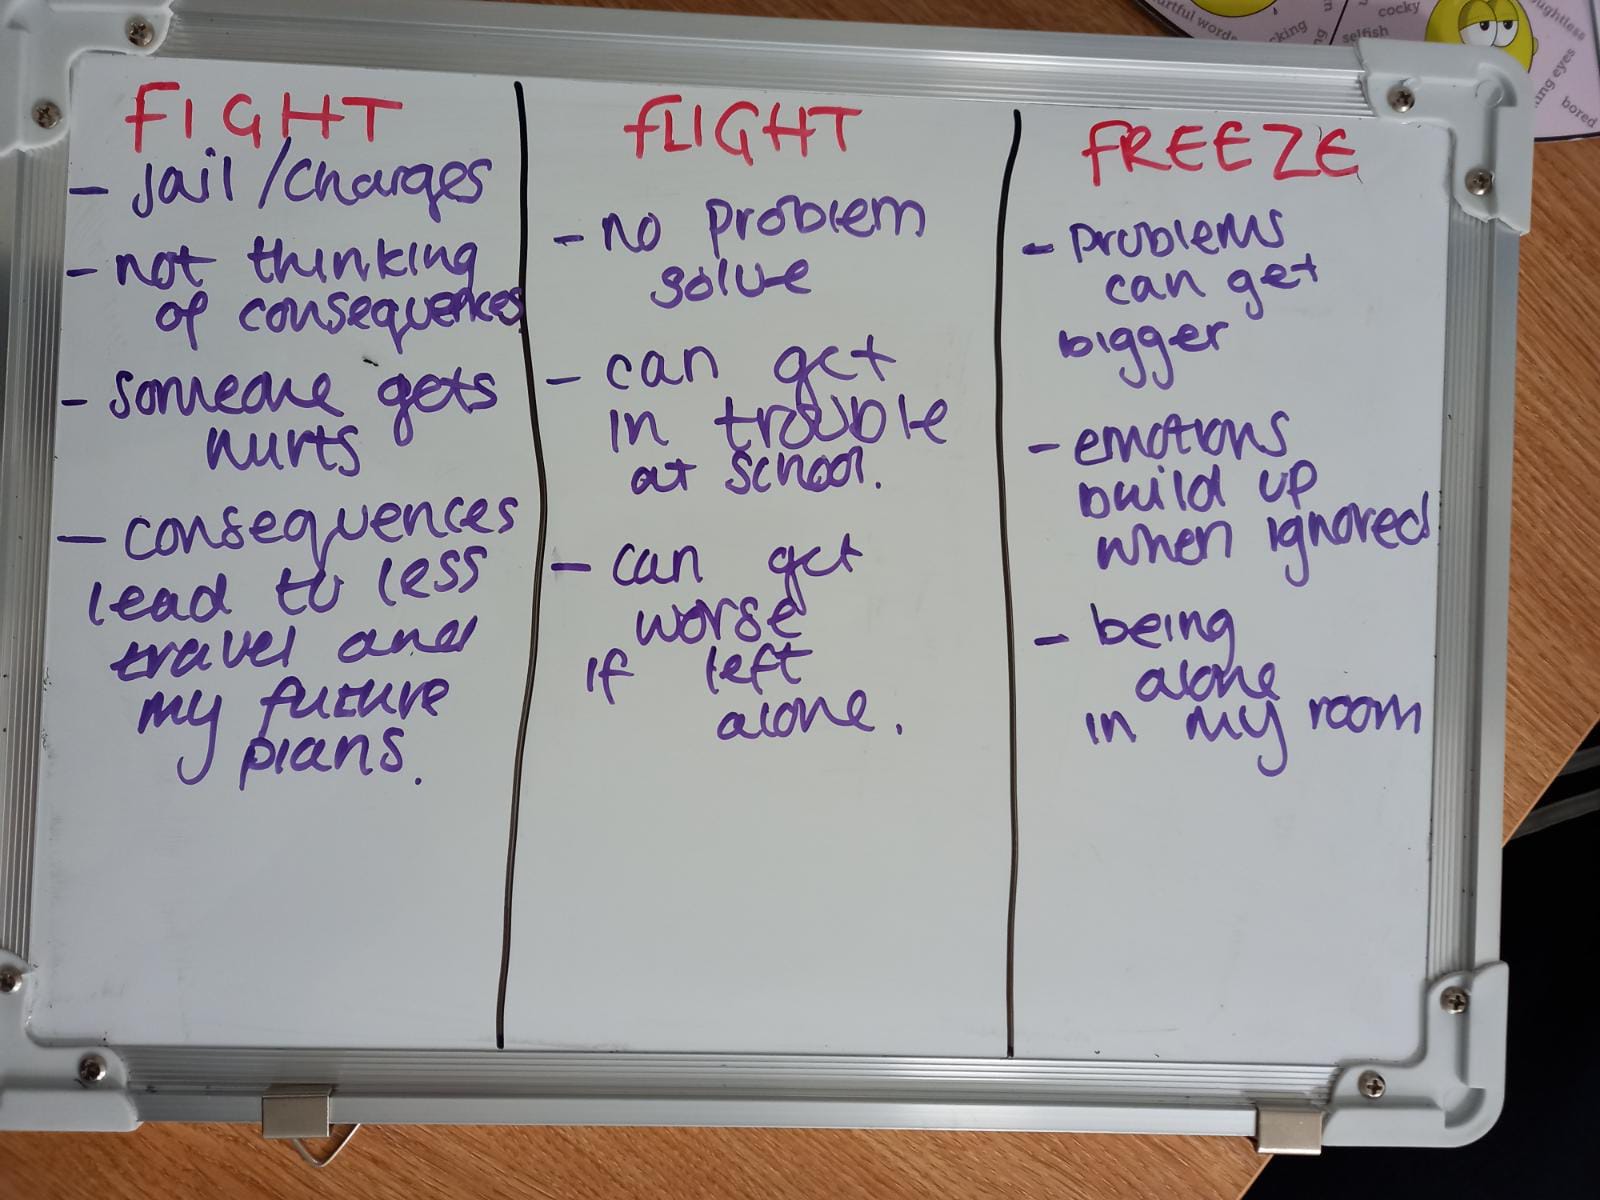 FIGHT
- jail/charges
- not thinking
of consequences
- someone gets
hurts
- consequences
lead to less
travel and
my future
plans.
FLIGHT
- no problem
solve
- can get
in trouble
at school.
- can get
worse
if left
alone.
FREEZE
- problems
can get
bigger
- emotions
build up
when ignored
- being
alone
in my room
cocky
selfish
bored